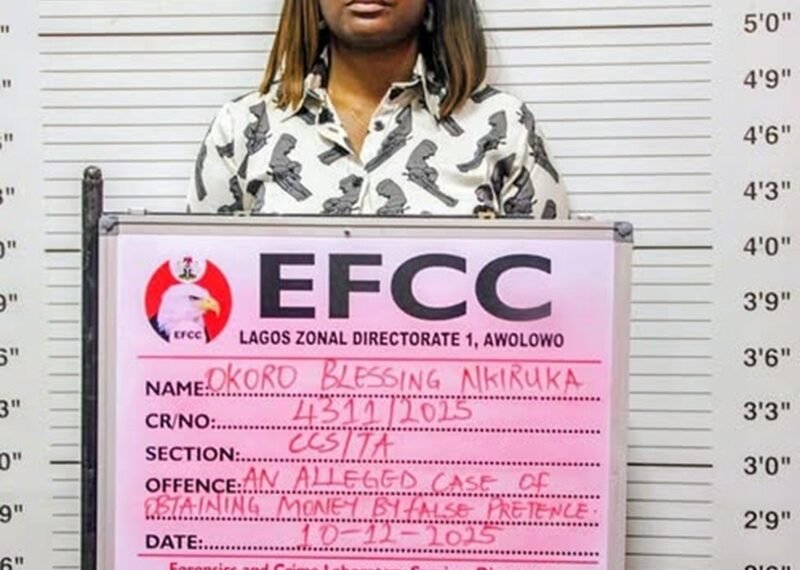 EFCC
EFCC
LAGOS ZONAL DIRECTORATE 1, AWOLOWO
NAME: OKORO BLESSING NKIRUKA
CR/NO: 4311/2025
SECTION: CCS/TA
OFFENCE: AN ALLEGED CASE OF
OBTAINING MONEY BY FALSE PRETENCE.
DATE: 10-12-2025
5'0"
4'9"
4'6"
4'3"
4'0"
3'9"
3'6"
3'3"
3'0"
2'9"